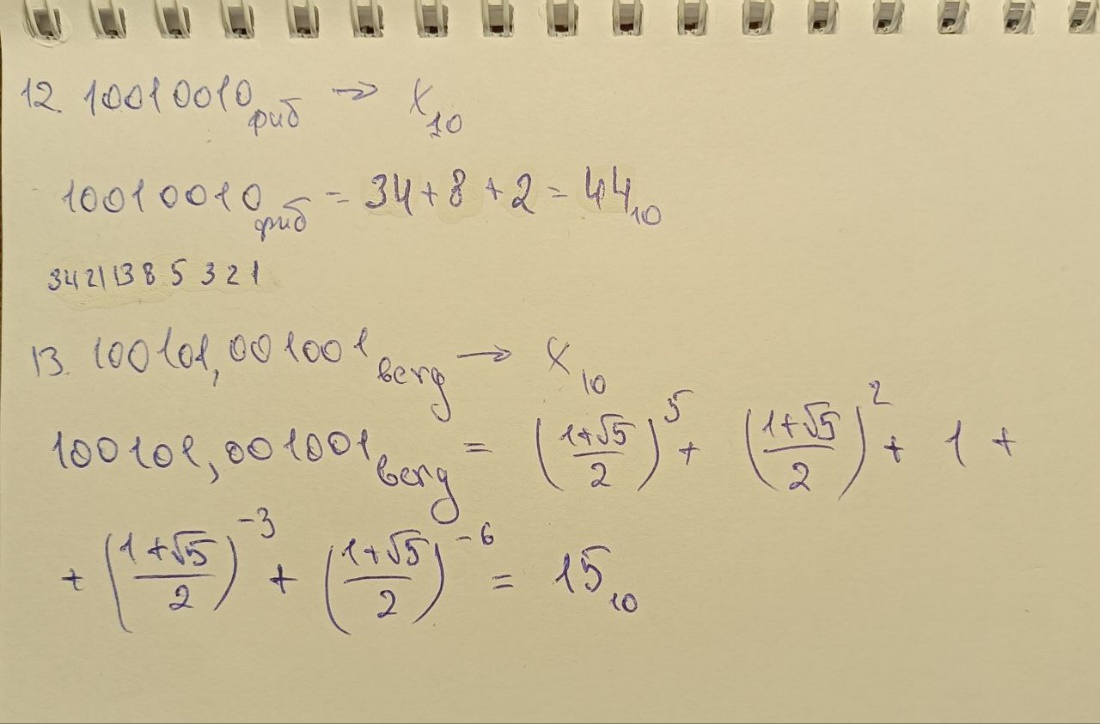 12. 10010010фиб → X10
10010010фиб = 34 + 8 + 2 = 4410
34 21 13 8 5 3 2 1
13. 100101,001001berg → X10
100101,001001berg = ((1+√5)/2)^5 + ((1+√5)/2)^2 + 1 +
+ ((1+√5)/2)^-3 + ((1+√5)/2)^-6 = 1510